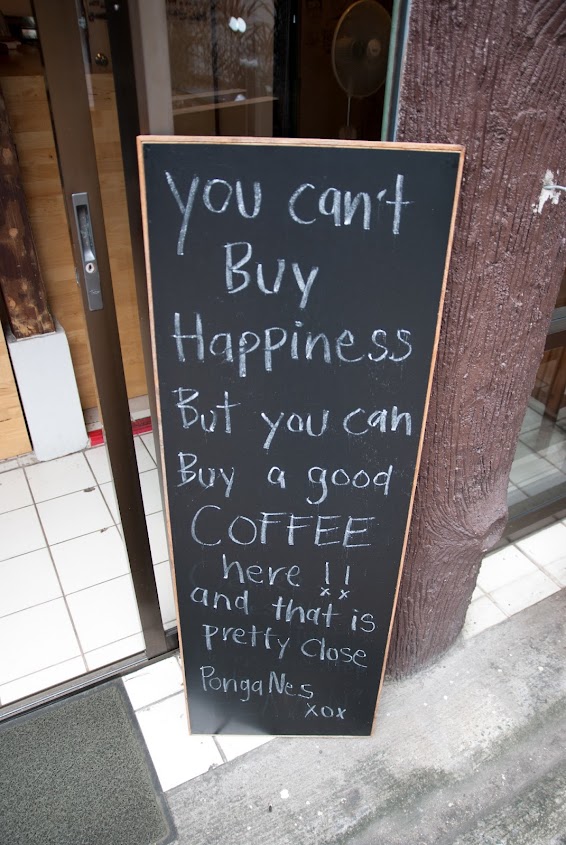 you can't
Buy
Happiness
But you can
Buy a good
COFFEE
here !!
and that is
pretty close
PongaNes
xox